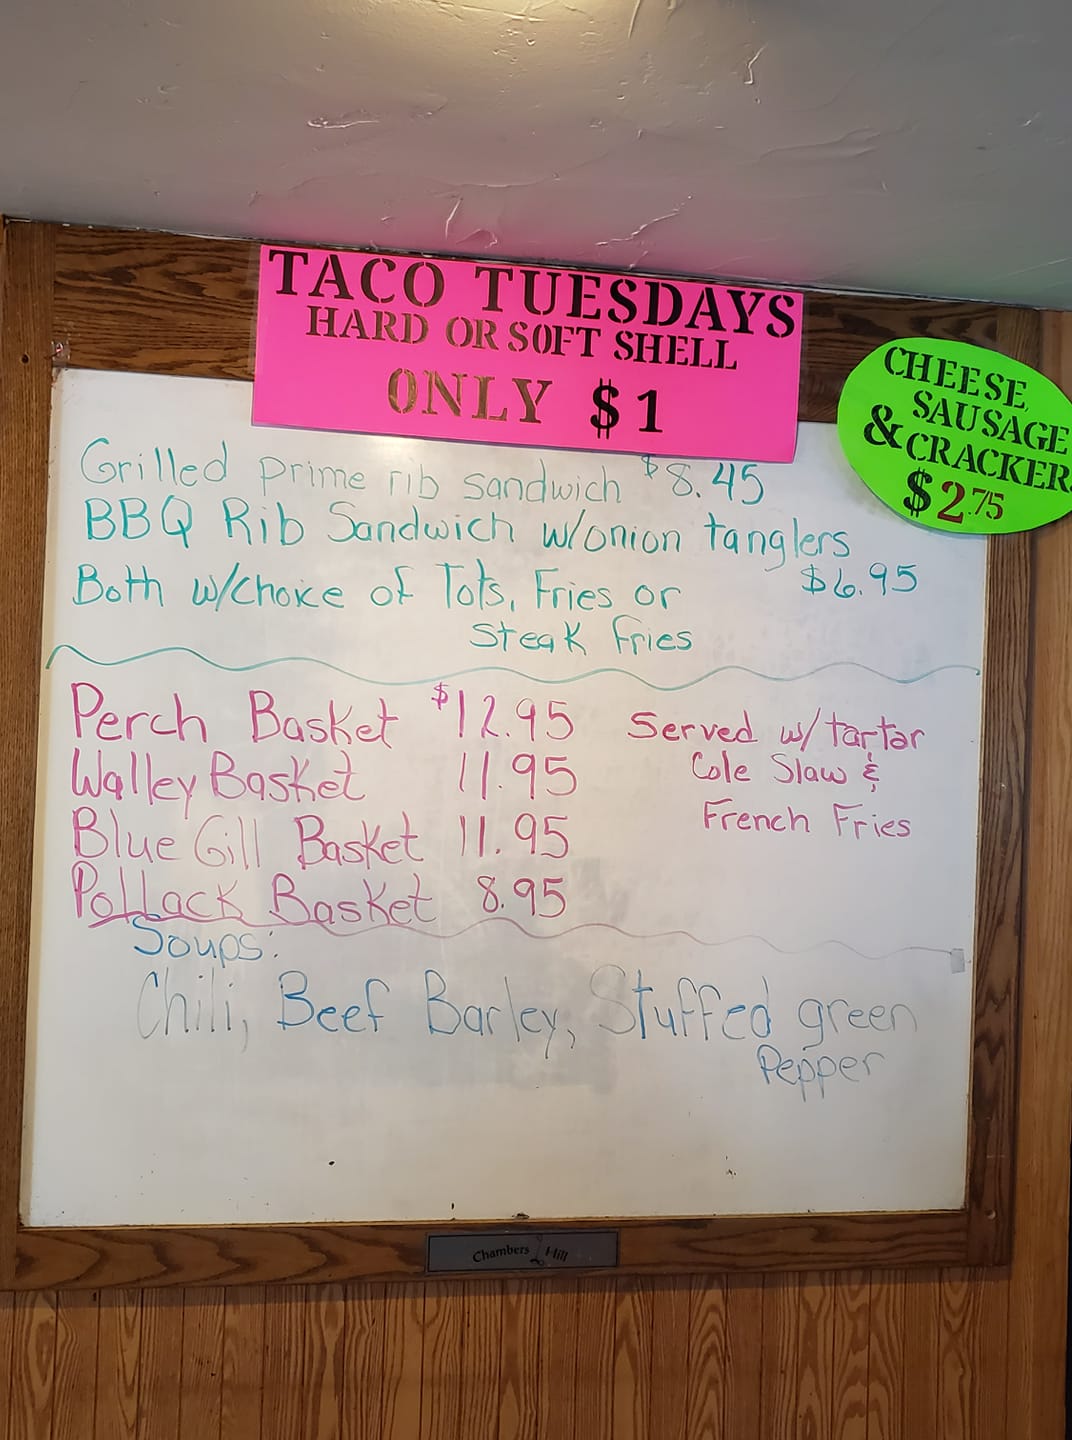 TACO TUESDAYS
HARD OR SOFT SHELL
ONLY $1
CHEESE,
SAUSAGE
& CRACKERS
$2.75
Grilled prime rib sandwich $8.45
BBQ Rib Sandwich w/onion tanglers
$6.95
Both w/choice of Tots, Fries or
Steak Fries
Perch Basket $12.95
Walley Basket 11.95
Blue Gill Basket 11.95
Pollack Basket 8.95
Served w/ tartar
Cole Slaw &
French Fries
Soups:
Chili, Beef Barley, Stuffed green
Pepper
Chambers Hill